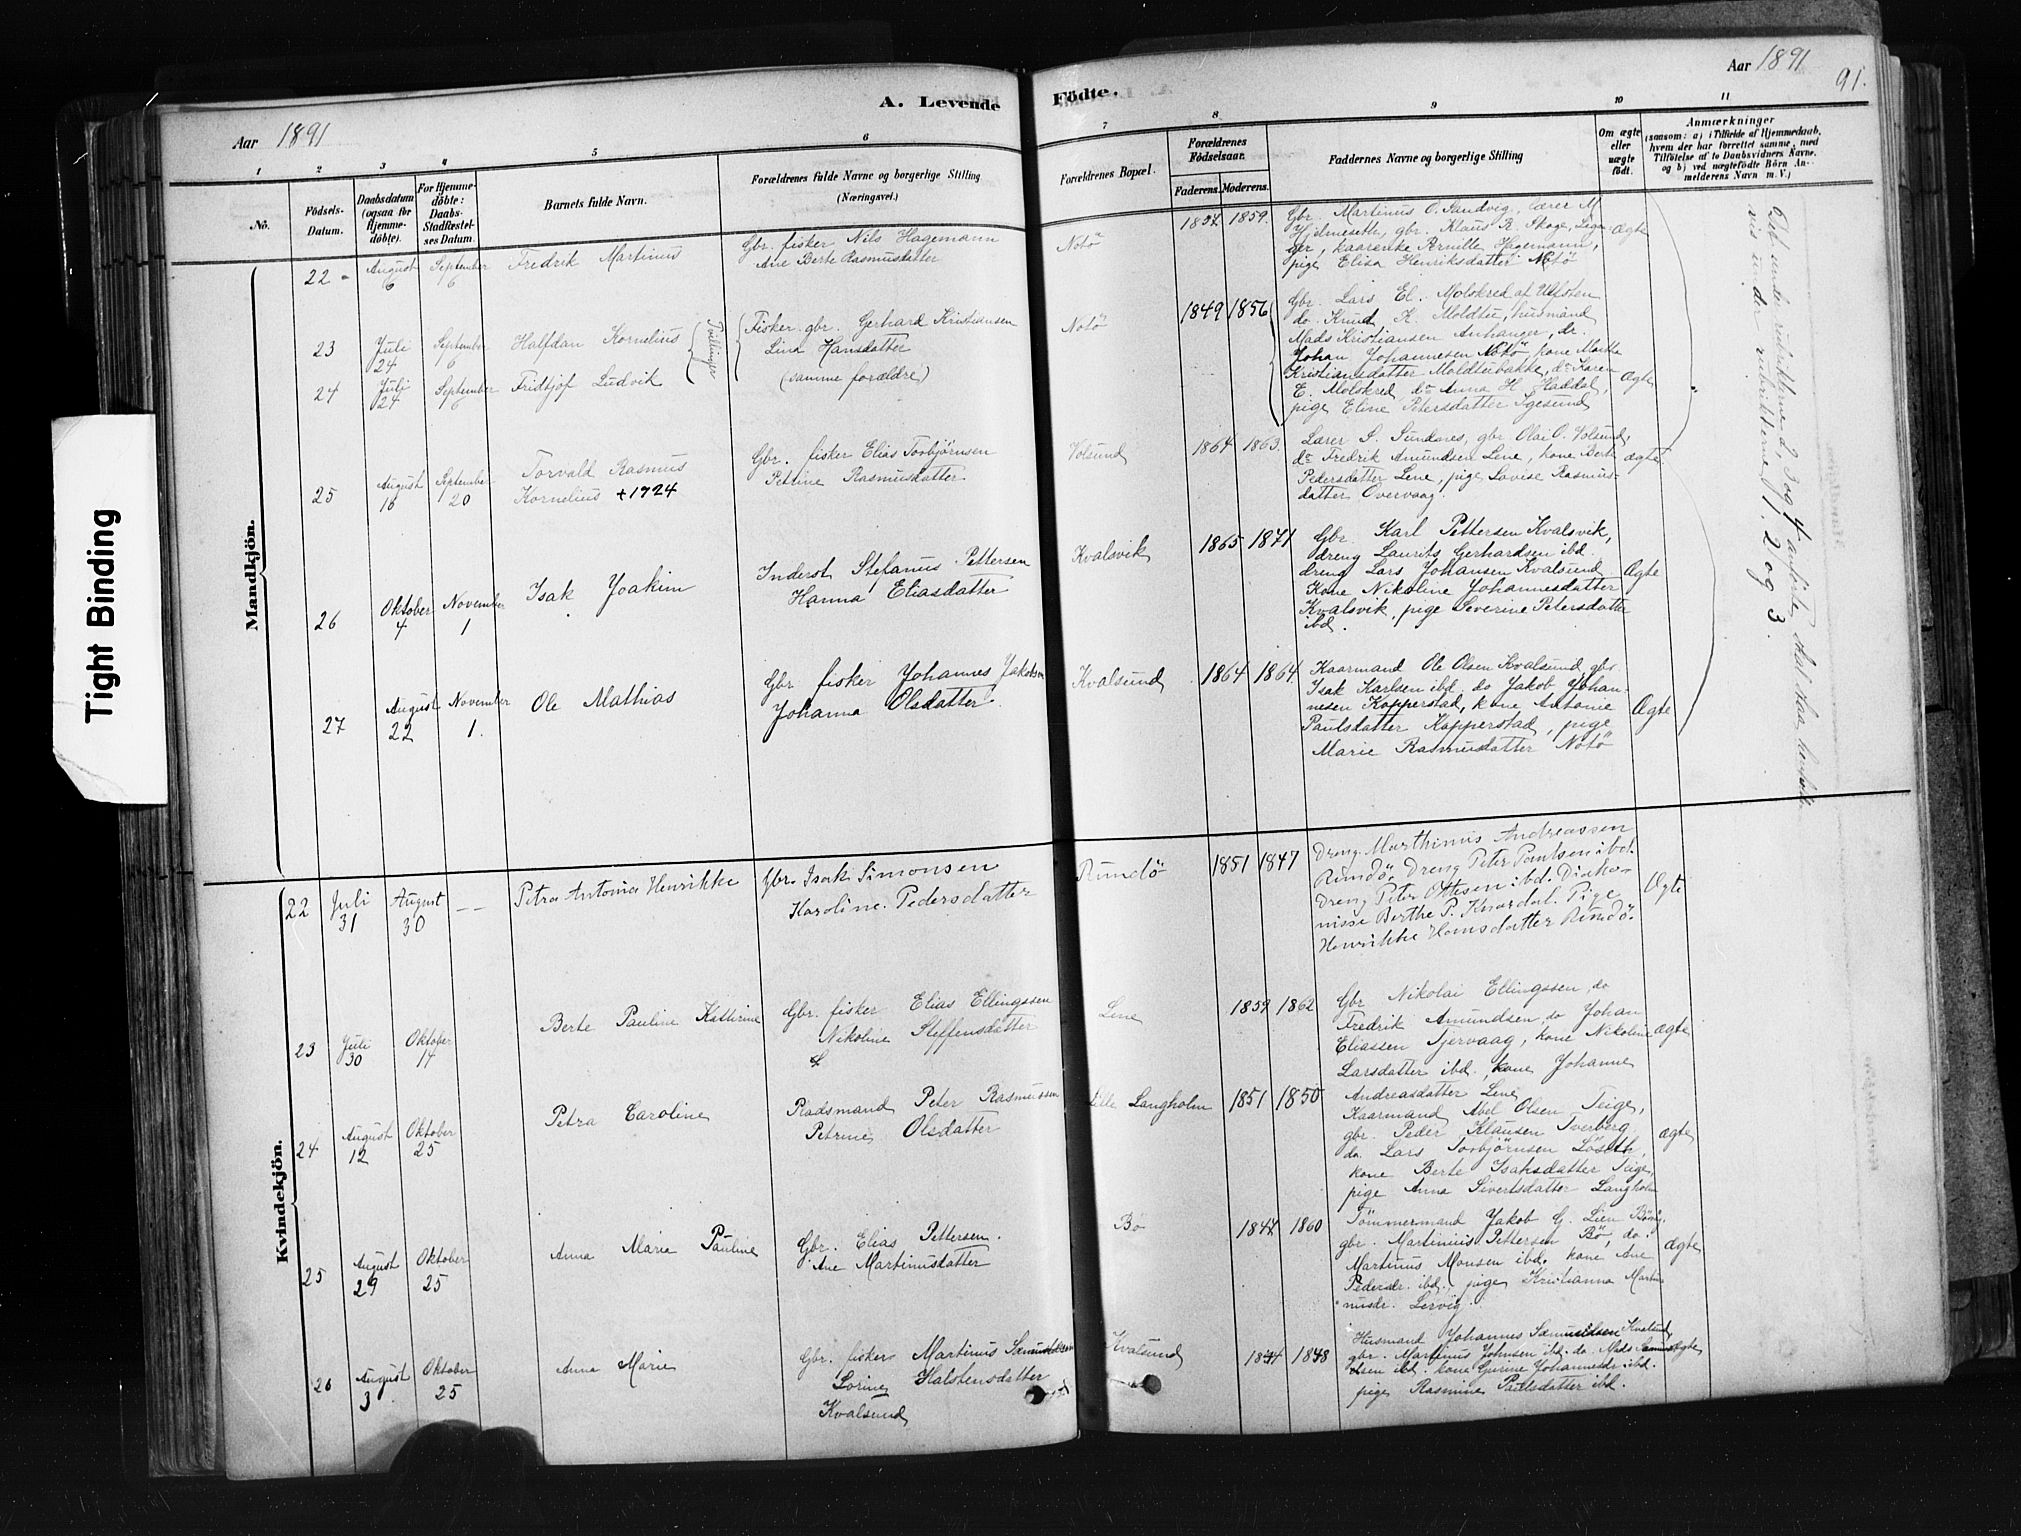 Tight Binding
A. Levende Födte.
Aar 1891
Aar 1891
91.
1
2
3
4
5
6
7
8
9
10
11
No.
Födsels-
Datum.
Daabsdatum
(ogsaa for
Hjemme-
döbte).
For Hjemme-
döbte:
Daabs-
Stadfæstel-
ses Datum.
Barnets fulde Navn.
Forældrenes fulde Navne og borgerlige Stilling
(Næringsvei.)
Forældrenes Bopæl.
Forældrenes
Födselsaar.
Faderens.
Moderens.
Faddernes Navne og borgerlige Stilling
Om ægte
eller
uægte
födt.
Anmærkninger
(saasom: a) i Tilfælde af Hjemmedaab,
hvem der har forrettet samme, med
Tilföielse af to Daabsvidners Navne.
og b) ved uægtefödte Börn An-
melderens Navn m. V.)
Mandkjön.
22 - August 6 September 6
Fredrik Martinus
Gbr. fisker Nils Hagemann
Ane Berte Rasmusdatter
Notö
1857 1859
Gbr. Martinus O. Sandvig, lærer M
Hjelmeseth, gbr. Klaus R. Skoge,
kaarenke Pernille Hagemann,
pige Elisa Henriksdatter Notö
ægte
23 Juli 24 September 6
Halfdan Kornelius
Tvillinger
Fisker gbr. Gerhard Kristiansen
Lina Hansdatter
Notö
1849 1856
24 Juli 24 September 6
Fridtjof Ludvik
(samme forældre)
Gbr. Lars El. Molskred af Ulfsten
do. Knud K. Moldtu, husmand
Mads Kristiansen Anhanger, dr.
Johan Johannesen Notö, kone Martha
Kristiansdatter Moldtebakke, do Karen
E. Molskred, do Anna H. Haddal,
pige Eline Petersdatter Igesund
Ægte
25 August 16 September 20
Torvald Rasmus
Kornelius + 1924
Gbr. fisker Elias Torbjörnsen
Pettine Rasmusdatter
Volsund
1864 1863.
Lærer S. Sundnes, gbr Olai O. Volsund,
do Fredrik Amundsen Lene, kone Berte
Pedersdatter Lene, pige Lovise Rasmus-
datter Overvaag.
ægte
26 Oktober 4 November 1
Isak Joakim
Inderst Stefanus Pettersen
Hanna Eliasdatter
Kvalsvik
1865 1871
Gbr. Karl Pettersen Kvalsvik,
dreng Laurits Gerhardsen ibd.
dreng Lars Johansen Kvalsund
Kone Nikoline Johannesdatter
Kvalsvik, pige Severine Petersdatter
ibd.
Ægte
27 August 22 November 1.
Ole Mathias
Gbr fisker Johannes Jakobsen
Johanna Olsdatter
Kvalsund
1864 1864
Kaarmand Ole Olsen Kvalsund, gbr.
Isak Karlsen ibd. do Jakob Johan-
nesen Kopperstad, kone Antonie
Paulsdatter Kopperstad, pige
Marie Rasmusdatter Notö
Ægte
Det under rubrikkerne 2, 3 og 4 anförte, skal staa henholds-
vis under rubrikkerne 1. 2 og 3.
Kvindekjön.
22 Juli 31 August 30 - -
Petra Antonia Henrikke
Gbr. Isak Simonsen
Karoline Pedersdatter
Rundö
1851 1847
Dreng Marthinus Andreassen
Rundö. Dreng Peter Paulsen ibd.
Dreng Peter Ottesen ibd. Diako-
nisse Berthe P. Knardal. Pige
Henrikke Hansdatter Rundö.
Ægte
23 Juli 30 Oktober 14
Berte Pauline Kathrine
Gbr. fisker Elias Ellingssen
Nikoline Steffensdatter
Lene
1859 1862
Gbr. Nikolai Ellingssen, do
Fredrik Amundsen, do Johan
Eliassen Tjervaag, kone Nikoline
Larsdatter ibd., kone Johanne
Andreasdatter Lene
ægte
24 August 12 Oktober 25
Petra Caroline
Radsmand Peter Rasmussen
Petrine Olsdatter
Lille Langholm
1851 1850
Kaarmand Abel Olsen Teige,
gbr. Peder Klausen Tverberg,
do. Lars Torbjörnsen Löseth,
kone Berte Isaksdatter Teige,
pige Anna Sivertsdatter Langholm
ægte
25 August 29 Oktober 25
Anna Maria Pauline
Gbr. Elias Pettersen.
Ane Martinusdatter
Bö
1847 1860
Tömmermand Jakob G. Lien
gbr. Martinius Pettersen Bö, do.
Martinus Monsen ibd. kone Ane
Pedersdr. ibd., pige Kristianna Marti-
nusdr. Lervig.
ægte
26 August 31 Oktober 25
Anna Marie
Gbr. fisker Martinus Samundsen
Lorine Halstensdatter
Kvalsund
Kvalsund
1844 1848
Husmand Johannes Samundsen Kvalsund
gbr. Martinus Johnsen ibd. do. Mads Samund-
sen ibd. kone Gurine Johannesdr ibd.
pige Rasmine Paulsdatter ibd.
ægte